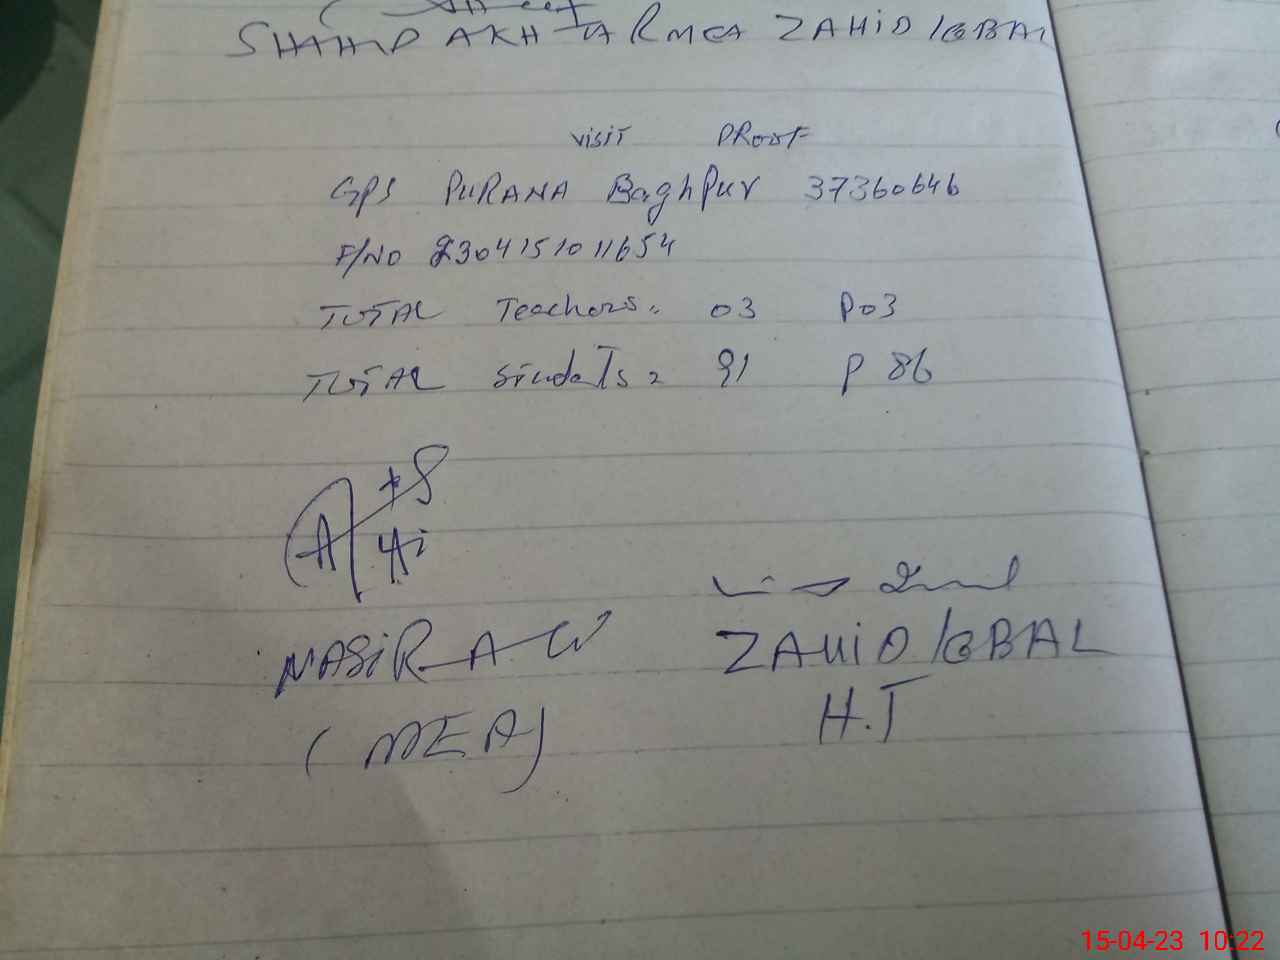 SHAHID AKHTAR MEA ZAHID IQBAL
visit PRoof
GPS PURANA Baghpur 37360646
F/NO 230415101 1654
TOTAL Teachers: 03 P03
TOTAL Students = 91 P 86
NASIR A W
ZAHID IQBAL
H.T
(MEA)
15-04-23 10:22